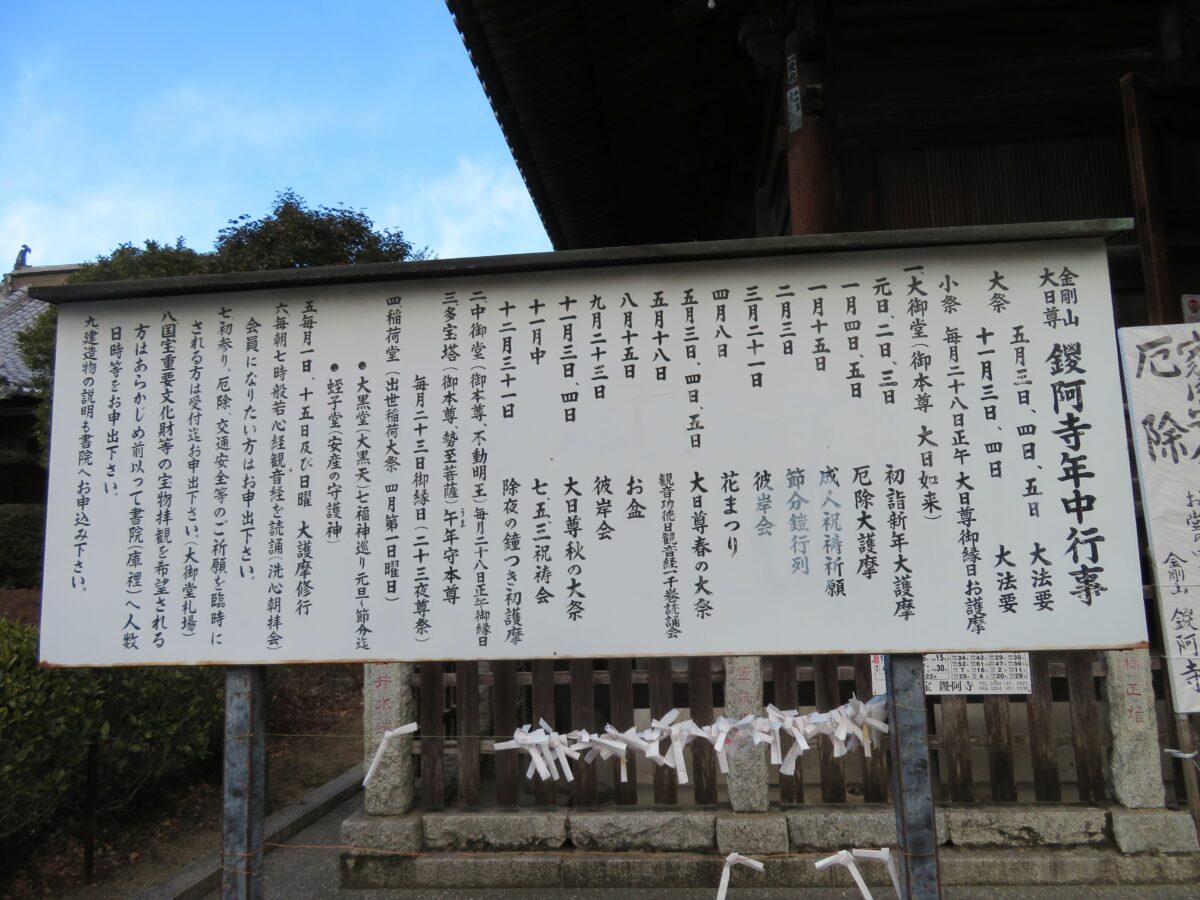 金剛山
大日尊
鑁阿寺年中行事
大祭 五月三日、四日、五日 大法要
十一月三日、四日 大法要
小祭 毎月二十八日正午 大日尊御縁日お護摩
一、大御堂(御本尊 大日如来)
元日、二日、三日 初詣新年大護摩
一月四日、五日 厄除大護摩
一月十五日 成人祝祷祈願
二月三日 節分鎧行列
三月二十一日 彼岸会
四月八日 花まつり
五月三日、四日、五日 大日尊春の大祭
五月十八日 観音功徳日観音経一千巻読誦会
八月十五日 お盆
九月二十三日 彼岸会
十一月三日、四日 大日尊秋の大祭
十一月中 七、五、三祝祷会
十二月三十一日 除夜の鐘つき初護摩
二、中御堂(御本尊、不動明王)毎月二十八日正午御縁日
三、多宝塔(御本尊、勢至菩薩)午年守本尊
うま
毎月二十三日御縁日(二十三夜尊祭)
四、稲荷堂(出世稲荷大祭 四月第一日曜日)
●大黒堂(大黒天)七福神巡り元旦~節分迄
●蛭子堂(安産の守護神)
五毎月一日、十五日及び日曜 大護摩修行
六毎朝七時般若心経観音経を読誦(洗心朝拝会)
会員になりたい方はお申出下さい。
七初参り、厄除、交通安全等のご祈願を臨時に
される方は受付迄お申出下さい。(大御堂札場)
八国宝重要文化財等の宝物拝観を希望される
方はあらかじめ前以って書院(庫裡)へ人数
日時等をお申出下さい。
九建造物の説明も書院へお申込み下さい。
厄除
金剛山 鑁阿寺
鑁阿寺